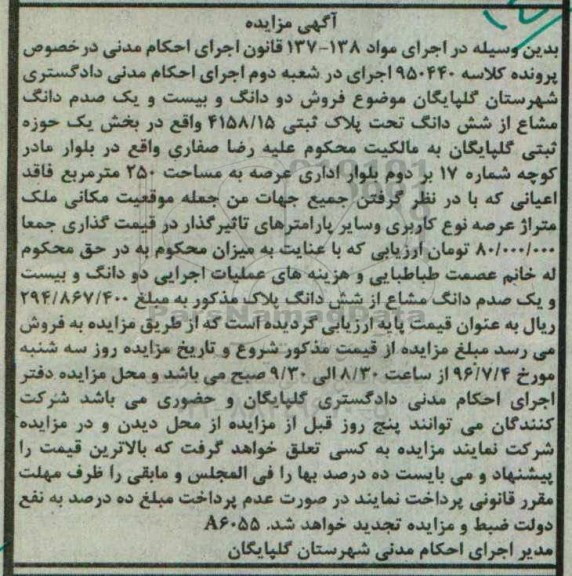 آگهی مزایده
بدین وسیله در اجرای مواد ۱۳۸-۱۳۷ قانون اجرای احکام مدنی درخصوص
پرونده کلاسه ۹۵۰۴۴۰ اجرای در شعبه دوم اجرای احکام مدنی دادگستری
شهرستان گلپایگان موضوع فروش دو دانگ و بیست و یک صدم دانگ
مشاع از شش دانگ تحت پلاک ثبتی ۴۱۵۸/۱۵ واقع در بخش یک حوزه
ثبتی گلپایگان به مالکیت محکوم علیه رضا صفاری واقع در بلوار مادر
کوچه شماره ۱۷ بر دوم بلوار اداری عرصه به مساحت ۲۵۰ مترمربع فاقد
اعیانی که با در نظر گرفتن جمیع جهات من جمله موقعیت مکانی ملک
متراژ عرصه نوع کاربری وسایر پارامترهای تاثیرگذار در قیمت گذاری جمعا
۸۰/۰۰۰/۰۰۰ تومان ارزیابی که با عنایت به میزان محکوم به در حق محکوم
له خانم عصمت طباطبایی و هزینه های عملیات اجرایی دو دانگ و بیست
و یک صدم دانگ مشاع از شش دانگ پلاک مذکور به مبلغ ۲۹۴/۸۶۷/۴۰۰
ریال به عنوان قیمت پایه ارزیابی گردیده است که از طریق مزایده به فروش
می رسد مبلغ مزایده از قیمت مذکور شروع و تاریخ مزایده روز سه شنبه
مورخ ۹۶/۷/۴ از ساعت ۸/۳۰ الی ۹/۳۰ صبح می باشد و محل مزایده دفتر
اجرای احکام مدنی دادگستری گلپایگان و حضوری می باشد شرکت
کنندگان می توانند پنج روز قبل از مزایده از محل دیدن و در مزایده
شرکت نمایند مزایده به کسی تعلق خواهد گرفت که بالاترین قیمت را
پیشنهاد و می بایست ده درصد بها را فی المجلس و مابقی را ظرف مهلت
مقرر قانونی پرداخت نمایند در صورت عدم پرداخت مبلغ ده درصد به نفع
دولت ضبط و مزایده تجدید خواهد شد. A۶۰۵۵
مدیر اجرای احکام مدنی شهرستان گلپایگان
ParsNamadData